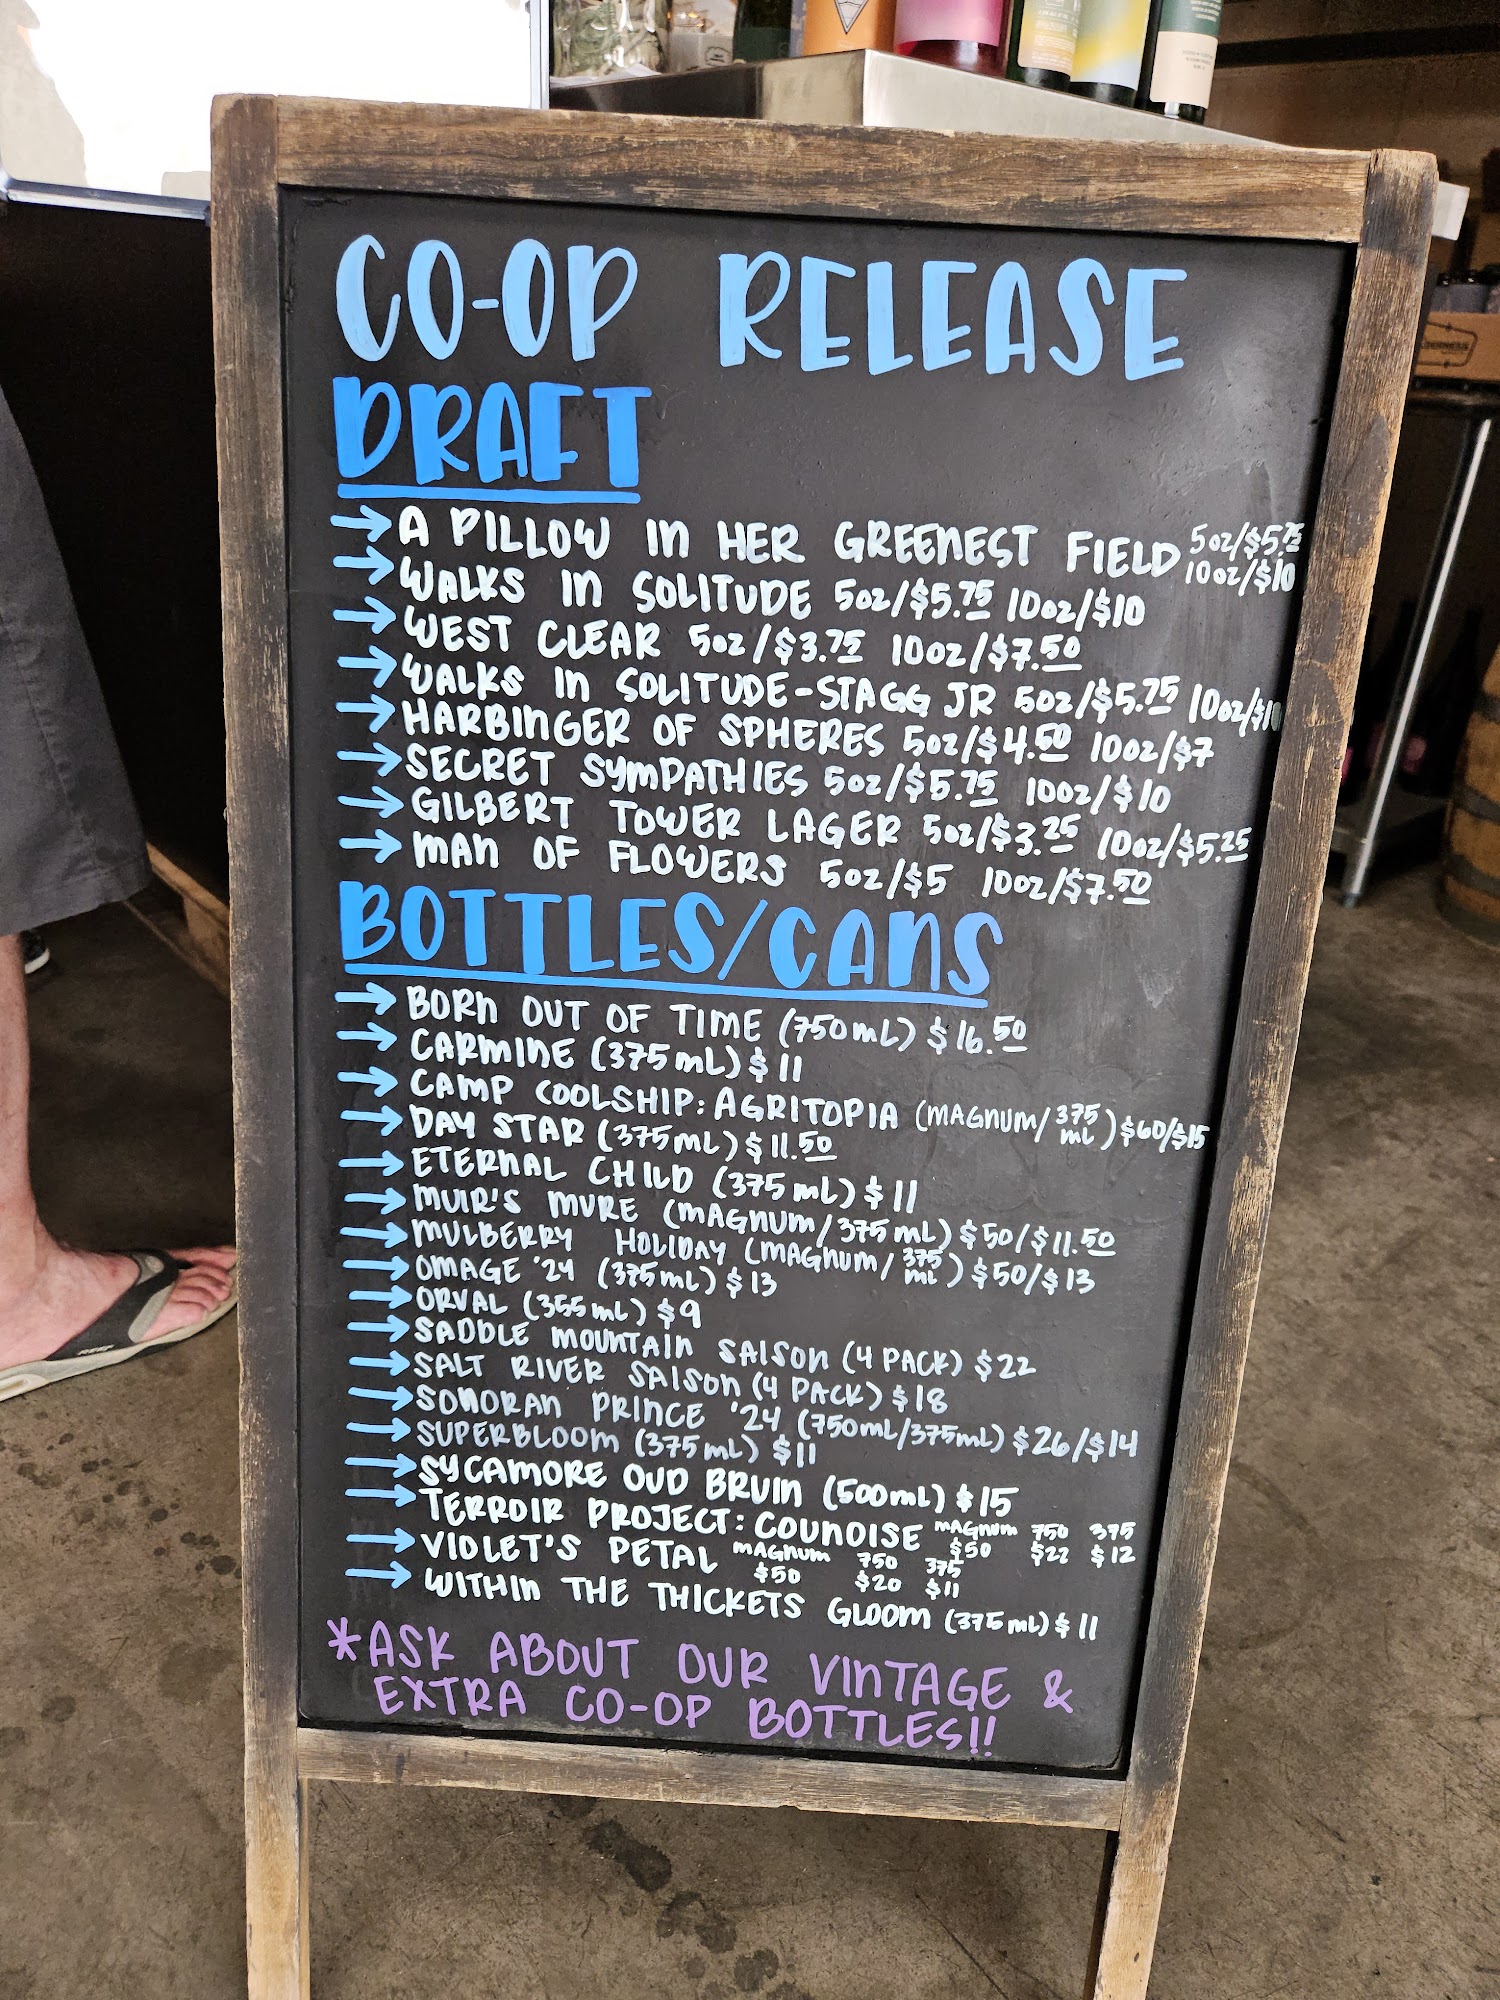 CO-OP RELEASE
DRAFT
→ A PILLOW IN HER GREENEST FIELD 5oz/$5.75 10oz/$10
→ WALKS IN SOLITUDE 5oz/$5.75 10oz/$10
→ WEST CLEAR 5oz/$3.75 10oz/$7.50
→ WALKS IN SOLITUDE-STAGG JR 5oz/$5.75 10oz/$10
→ HARBINGER OF SPHERES 5oz/$4.50 10oz/$7
→ SECRET SYMPATHIES 5oz/$5.75 10oz/$10
→ GILBERT TOWER LAGER 5oz/$3.25 10oz/$5.25
→ MAN OF FLOWERS 5oz/$5 10oz/$7.50
BOTTLES/CANS
→ BORN OUT OF TIME (750mL) $16.50
→ CARMINE (375mL) $11
→ CAMP COOLSHIP: AGRITOPIA (MAGNUM/375 mL) $60/$15
→ DAY STAR (375mL) $11.50
→ ETERNAL CHILD (375mL) $11
→ MUIR'S MURE (MAGNUM/375mL) $50/$11.50
→ MULBERRY HOLIDAY (MAGNUM/375 mL) $50/$13
→ OMAGE '24 (375mL) $13
→ ORVAL (355mL) $9
→ SADDLE MOUNTAIN SAISON (4 PACK) $22
→ SALT RIVER SAISON (4 PACK) $18
→ SONORAN PRINCE '24 (750mL/375mL) $26/$14
→ SUPERBLOOM (375mL) $11
→ SYCAMORE OUD BRUIN (500mL) $15
→ TERROIR PROJECT: COUNOISE MAGNUM $50 750 $22 375 $12
→ VIOLET'S PETAL MAGNUM $50 750 $20 375 $11
→ WITHIN THE THICKETS GLOOM (375mL) $11
*ASK ABOUT OUR VINTAGE &
EXTRA CO-OP BOTTLES!!